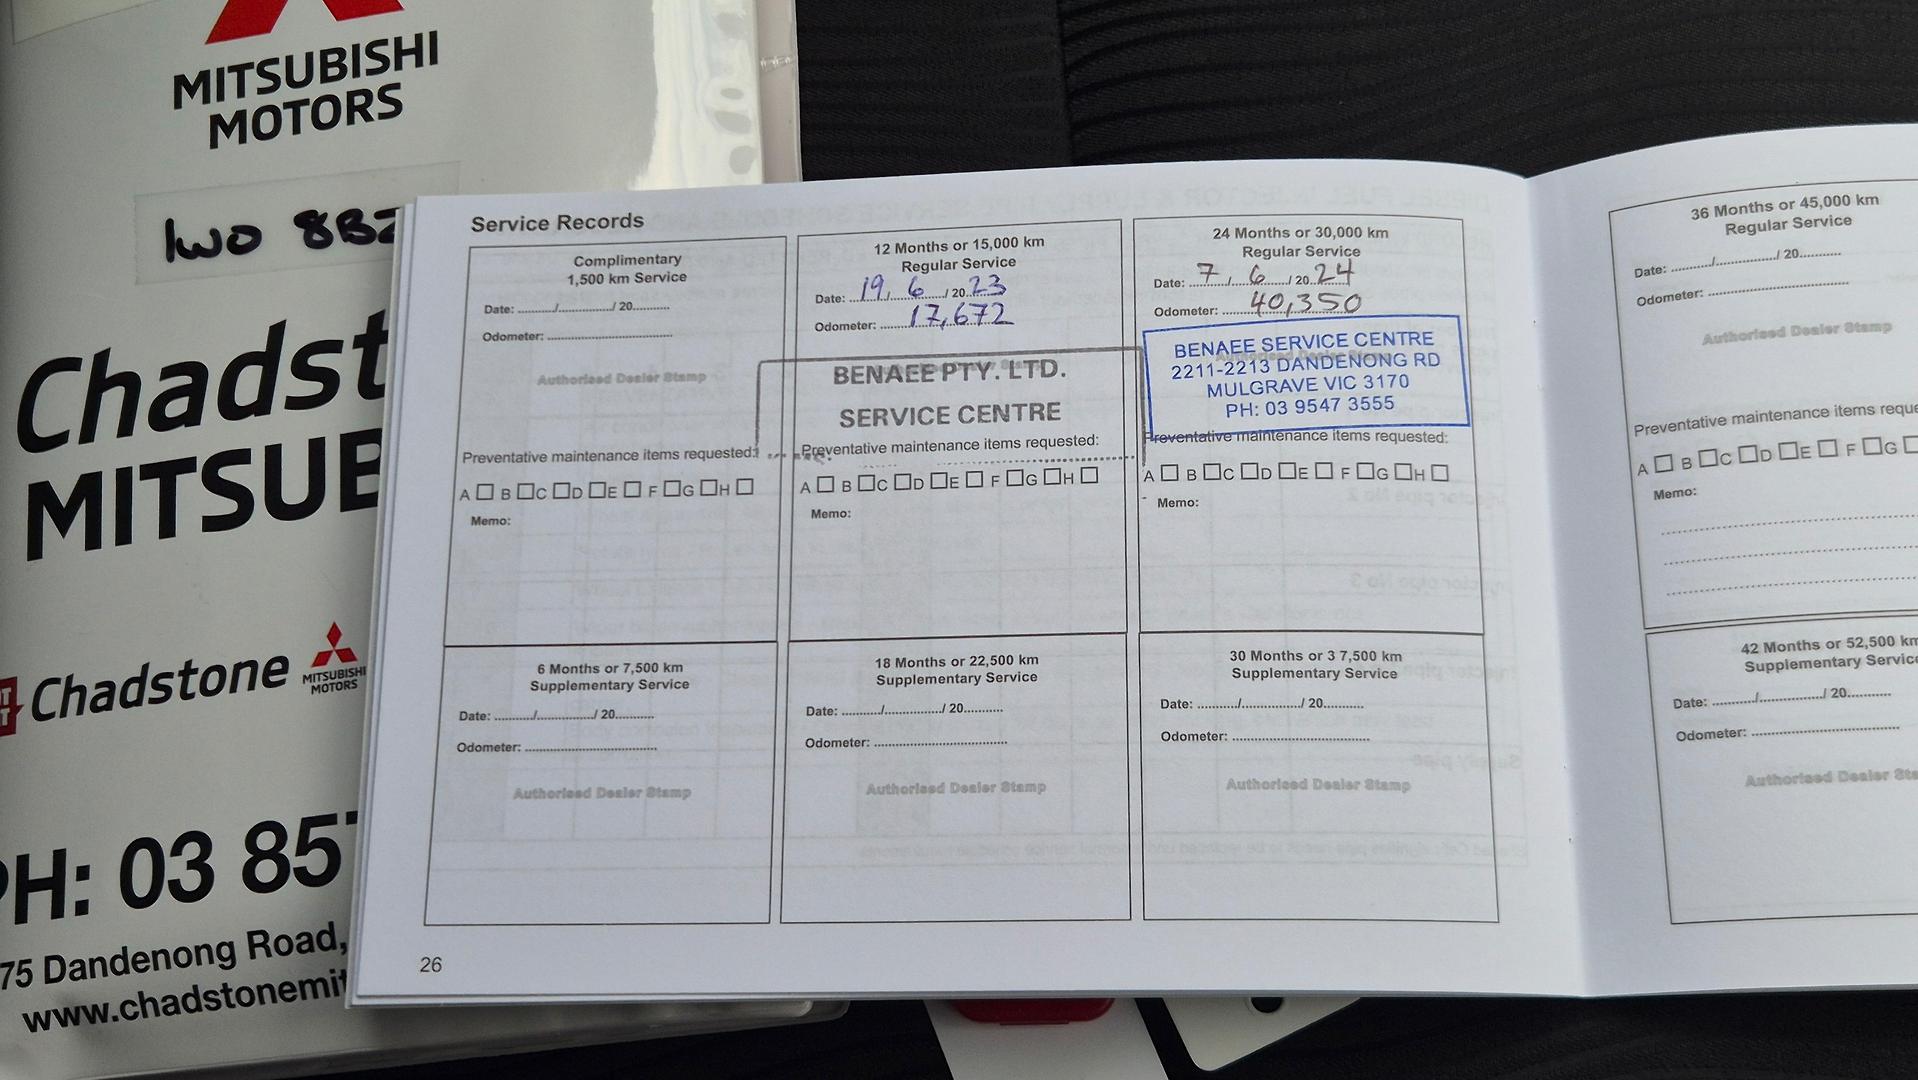 MITSUBISHI
MOTORS
1WO 8BZ
Chadst
MITSUB
Chadstone
MITSUBISHI
MOTORS
PH: 03 85
75 Dandenong Road,
www.chadstonemit
Service Records
Complimentary
1,500 km Service
Date: ........../............../ 20..........
Odometer: ....................................
Authorised Dealer Stamp
Preventative maintenance items requested:
A □ B □ C □ D □ E □ F □ G □ H □
Memo:
12 Months or 15,000 km
Regular Service
Date: 19 / 6 / 20 23
Odometer: 17,672
BENAEE PTY. LTD.
SERVICE CENTRE
Preventative maintenance items requested:
A □ B □ C □ D □ E □ F □ G □ H □
Memo:
24 Months or 30,000 km
Regular Service
Date: 7 / 6 / 20 24
Odometer: 40,350
BENAEE SERVICE CENTRE
2211-2213 DANDENONG RD
MULGRAVE VIC 3170
PH: 03 9547 3555
Preventative maintenance items requested:
A □ B □ C □ D □ E □ F □ G □ H □
Memo:
36 Months or 45,000 km
Regular Service
Date: ........../............../ 20..........
Odometer: ....................................
Authorised Dealer Stamp
Preventative maintenance items reque
A □ B □ C □ D □ E □ F □ G □
Memo:
6 Months or 7,500 km
Supplementary Service
Date: ........../............../ 20..........
Odometer: ....................................
Authorised Dealer Stamp
18 Months or 22,500 km
Supplementary Service
Date: ........../............../ 20..........
Odometer: ....................................
Authorised Dealer Stamp
30 Months or 3 7,500 km
Supplementary Service
Date: ........../............../ 20..........
Odometer: ....................................
Authorised Dealer Stamp
42 Months or 52,500 km
Supplementary Service
Date: ........../............../ 20..........
Odometer: ....................................
Authorised Dealer Sta
26